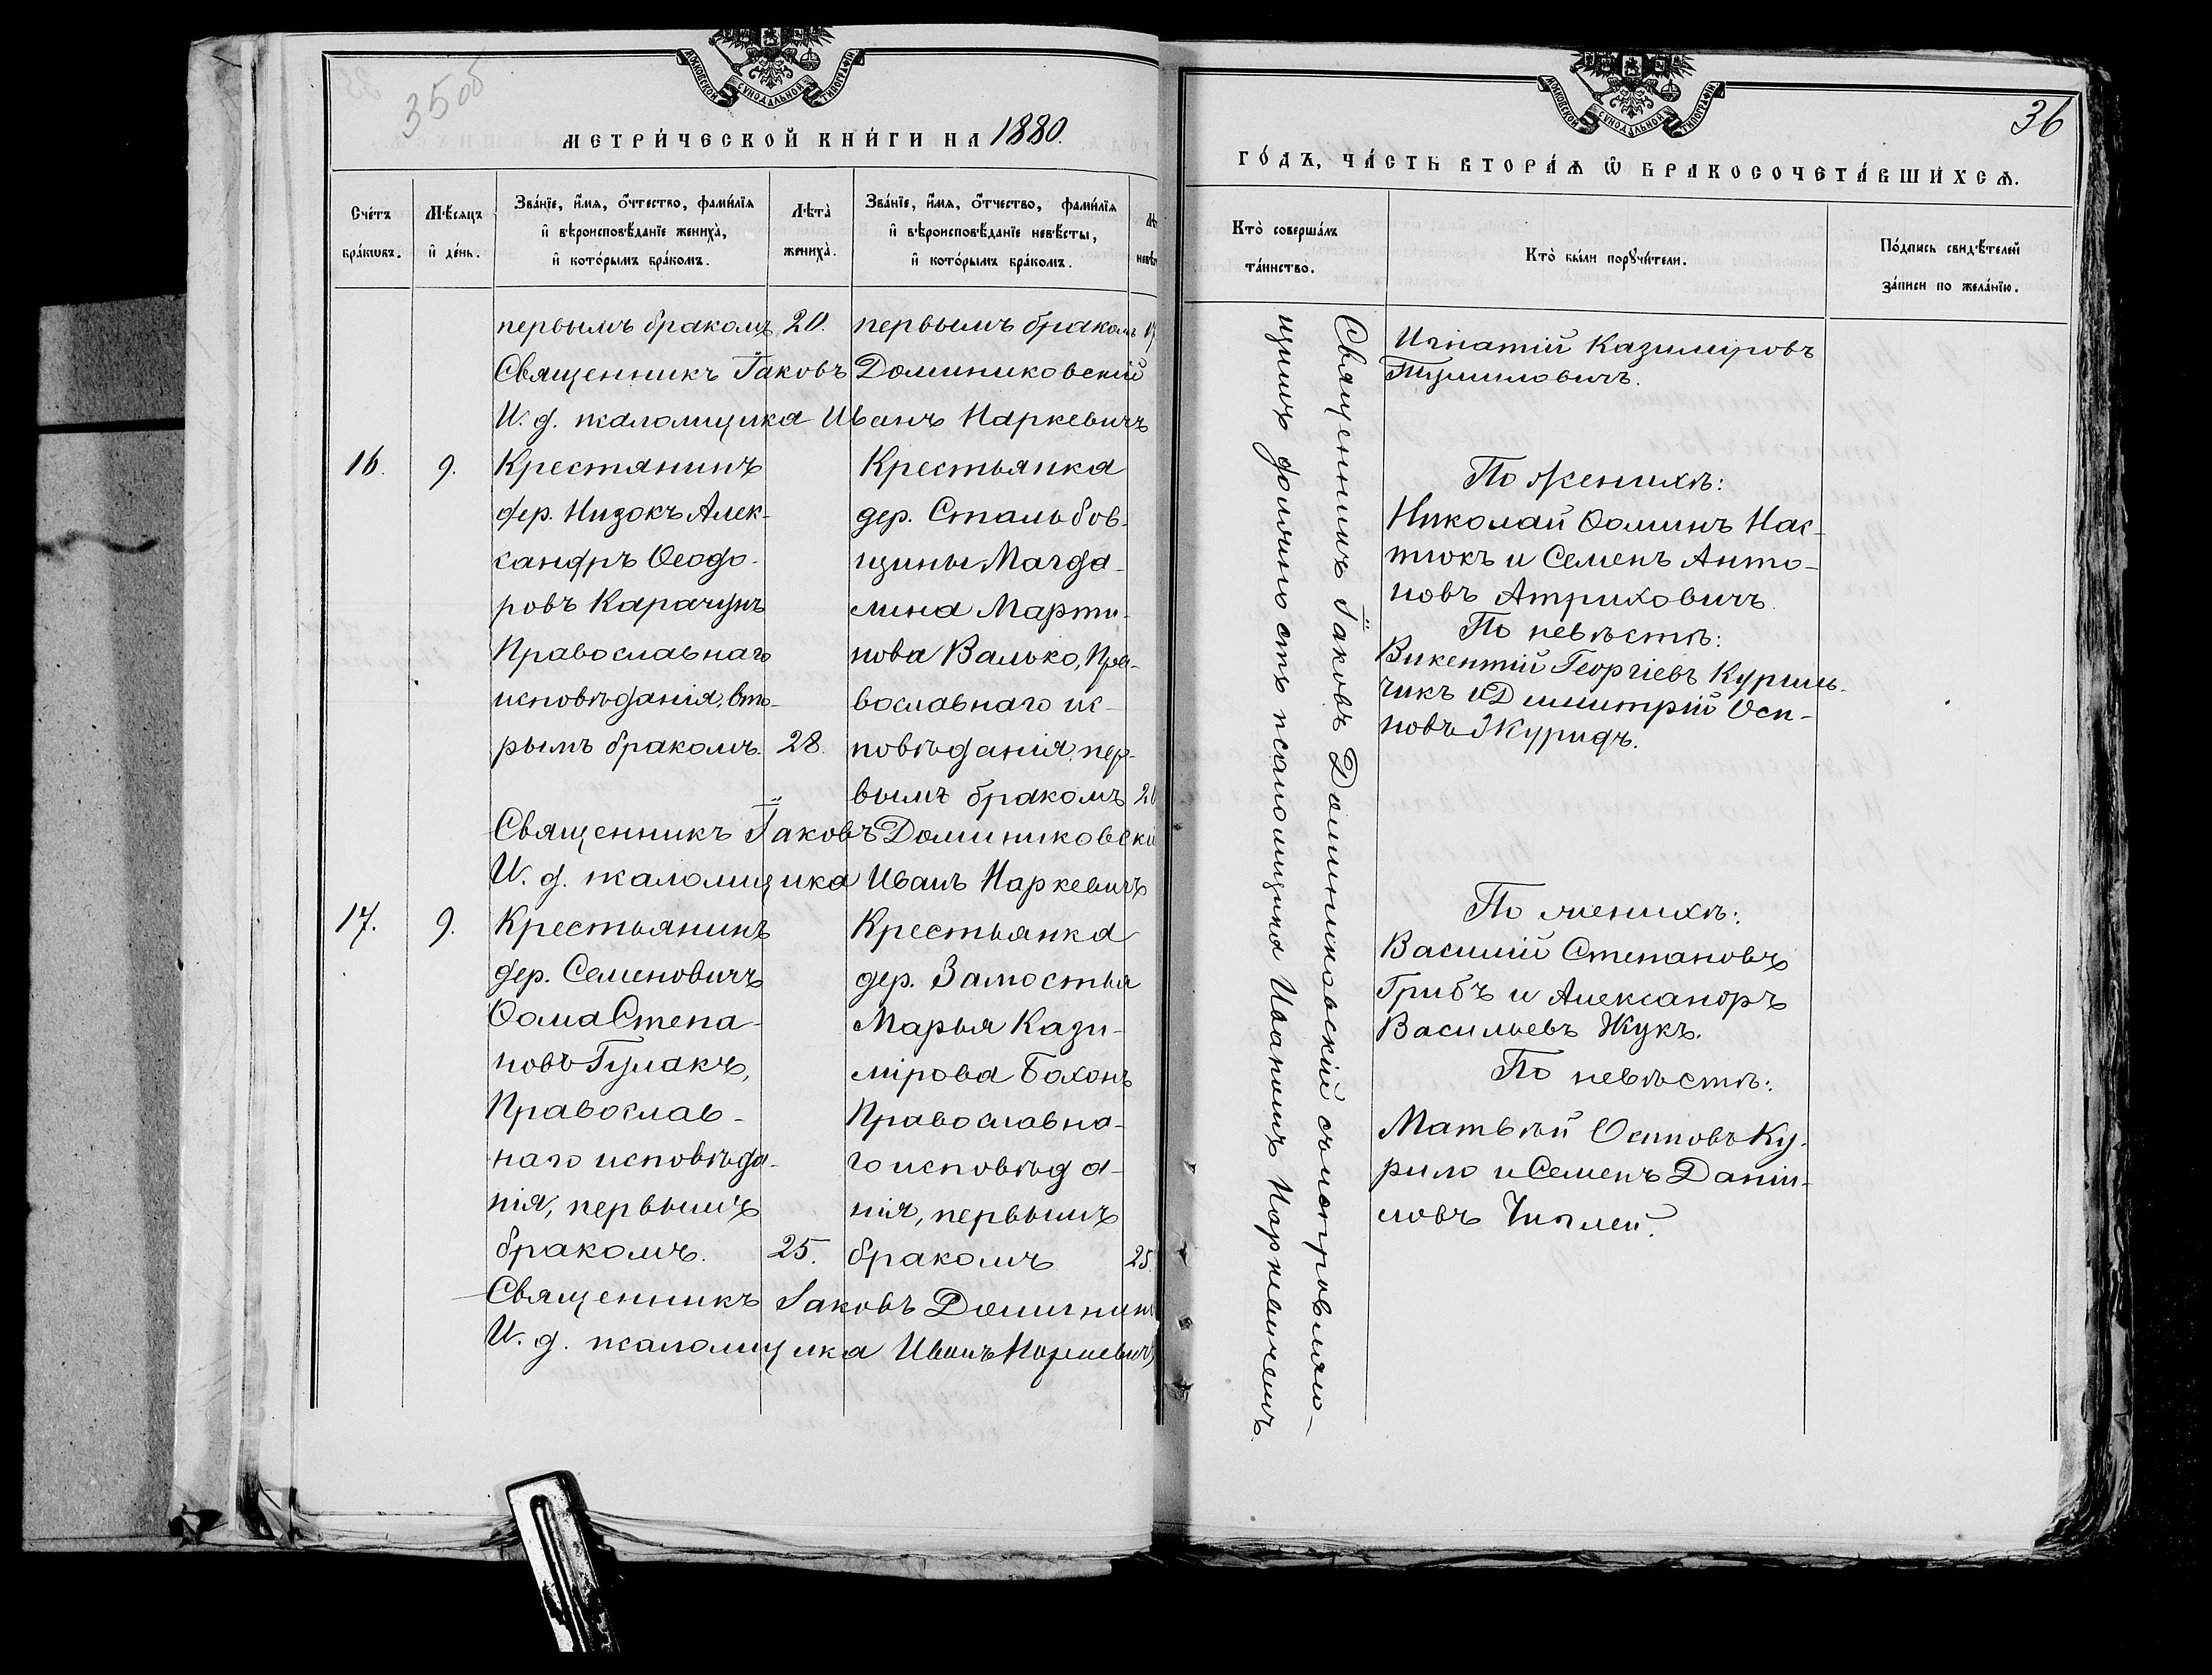 35об
МОСКОВСКОЙ СѴНОДАЛЬНОЙ ТИПОГРАФІИ
МЕТРИ́ЧЕСКОЙ КНИ́ГИ НА 1880.
Сче́тъ бра́кѡвъ.
Мѣ́сяцъ и҆ де́нь.
Зва́нїе, и҆́мя, ѻ҆́тчество, фами́лїя и҆ вѣроисповѣ́данїе жениха̀, и҆ кото́рымъ бра́комъ.
Лѣта̀ жениха̀.
Зва́нїе, и҆́мя, ѻ҆́тчество, фами́лїя и҆ вѣроисповѣ́данїе невѣ́сты, и҆ кото́рымъ бра́комъ.
первымъ бракомъ 20. первымъ бракомъ
Священникъ Іаковъ Доминиковскій
И. д. псаломщика Иванъ Наркевичъ
16. 9.
Крестянинъ
дер. Низокъ Алек-
сандръ Ѳеодо-
ровъ Карачунъ
Православнаго
исповѣданія, вто-
рымъ бракомъ. 28.
Крестьянка
дер. Стальбов-
щины Магда-
лина Марти-
нова Валько, Пра-
вославнаго ис-
повѣданія, пер-
вымъ бракомъ 20
Священникъ Іаковъ Доминиковскі
И. д. псаломщика Иванъ Наркевичъ
17. 9.
Крестьянинъ
дер. Семеновичъ
Ѳома Степа-
новъ Гулакъ,
Православ-
наго исповѣда-
нія, первымъ
бракомъ. 25.
Крестьянка
дер. Замостья
Марья Кази-
мірова Бохонъ
Православна-
го исповѣда-
нія, первымъ
бракомъ 25.
Священникъ Іаковъ Доминик
И. д. псаломщика Иванъ Наркевичъ
МОСКОВСКОЙ СѴНОДАЛЬНОЙ ТИПОГРАФІИ
36
ГО́ДЪ, ЧА́СТЬ ВТОРА́Ѧ Ѡ҆ БРАКОСОЧЕТА́ВШИХСѦ.
Кто̀ соверша́лъ та́инство.
Кто̀ бы́ли порꙋчи́тели.
По́дпись свидѣ́телей за́писи по жела́нїю.
Священникъ Іаковъ Доминиковскій съ исправляю-
щимъ должность псаломщика Иваномъ Наркевичемъ.
Игнатій Казиміровъ
По женихѣ:
Николай Ѳоминъ Нас-
тюкъ и Семенъ Анто-
новъ Атриховичъ
По невѣстѣ:
Викентій Георгіевъ Куриль-
чикъ и Димитрій Оси-
повъ Журидъ.
По женихѣ:
Василій Степановъ
Грибъ и Александръ
Васильевъ Жукъ.
По невѣстѣ:
Матвѣй Осиповъ Ку-
рило и Семенъ Даніи-
ловъ